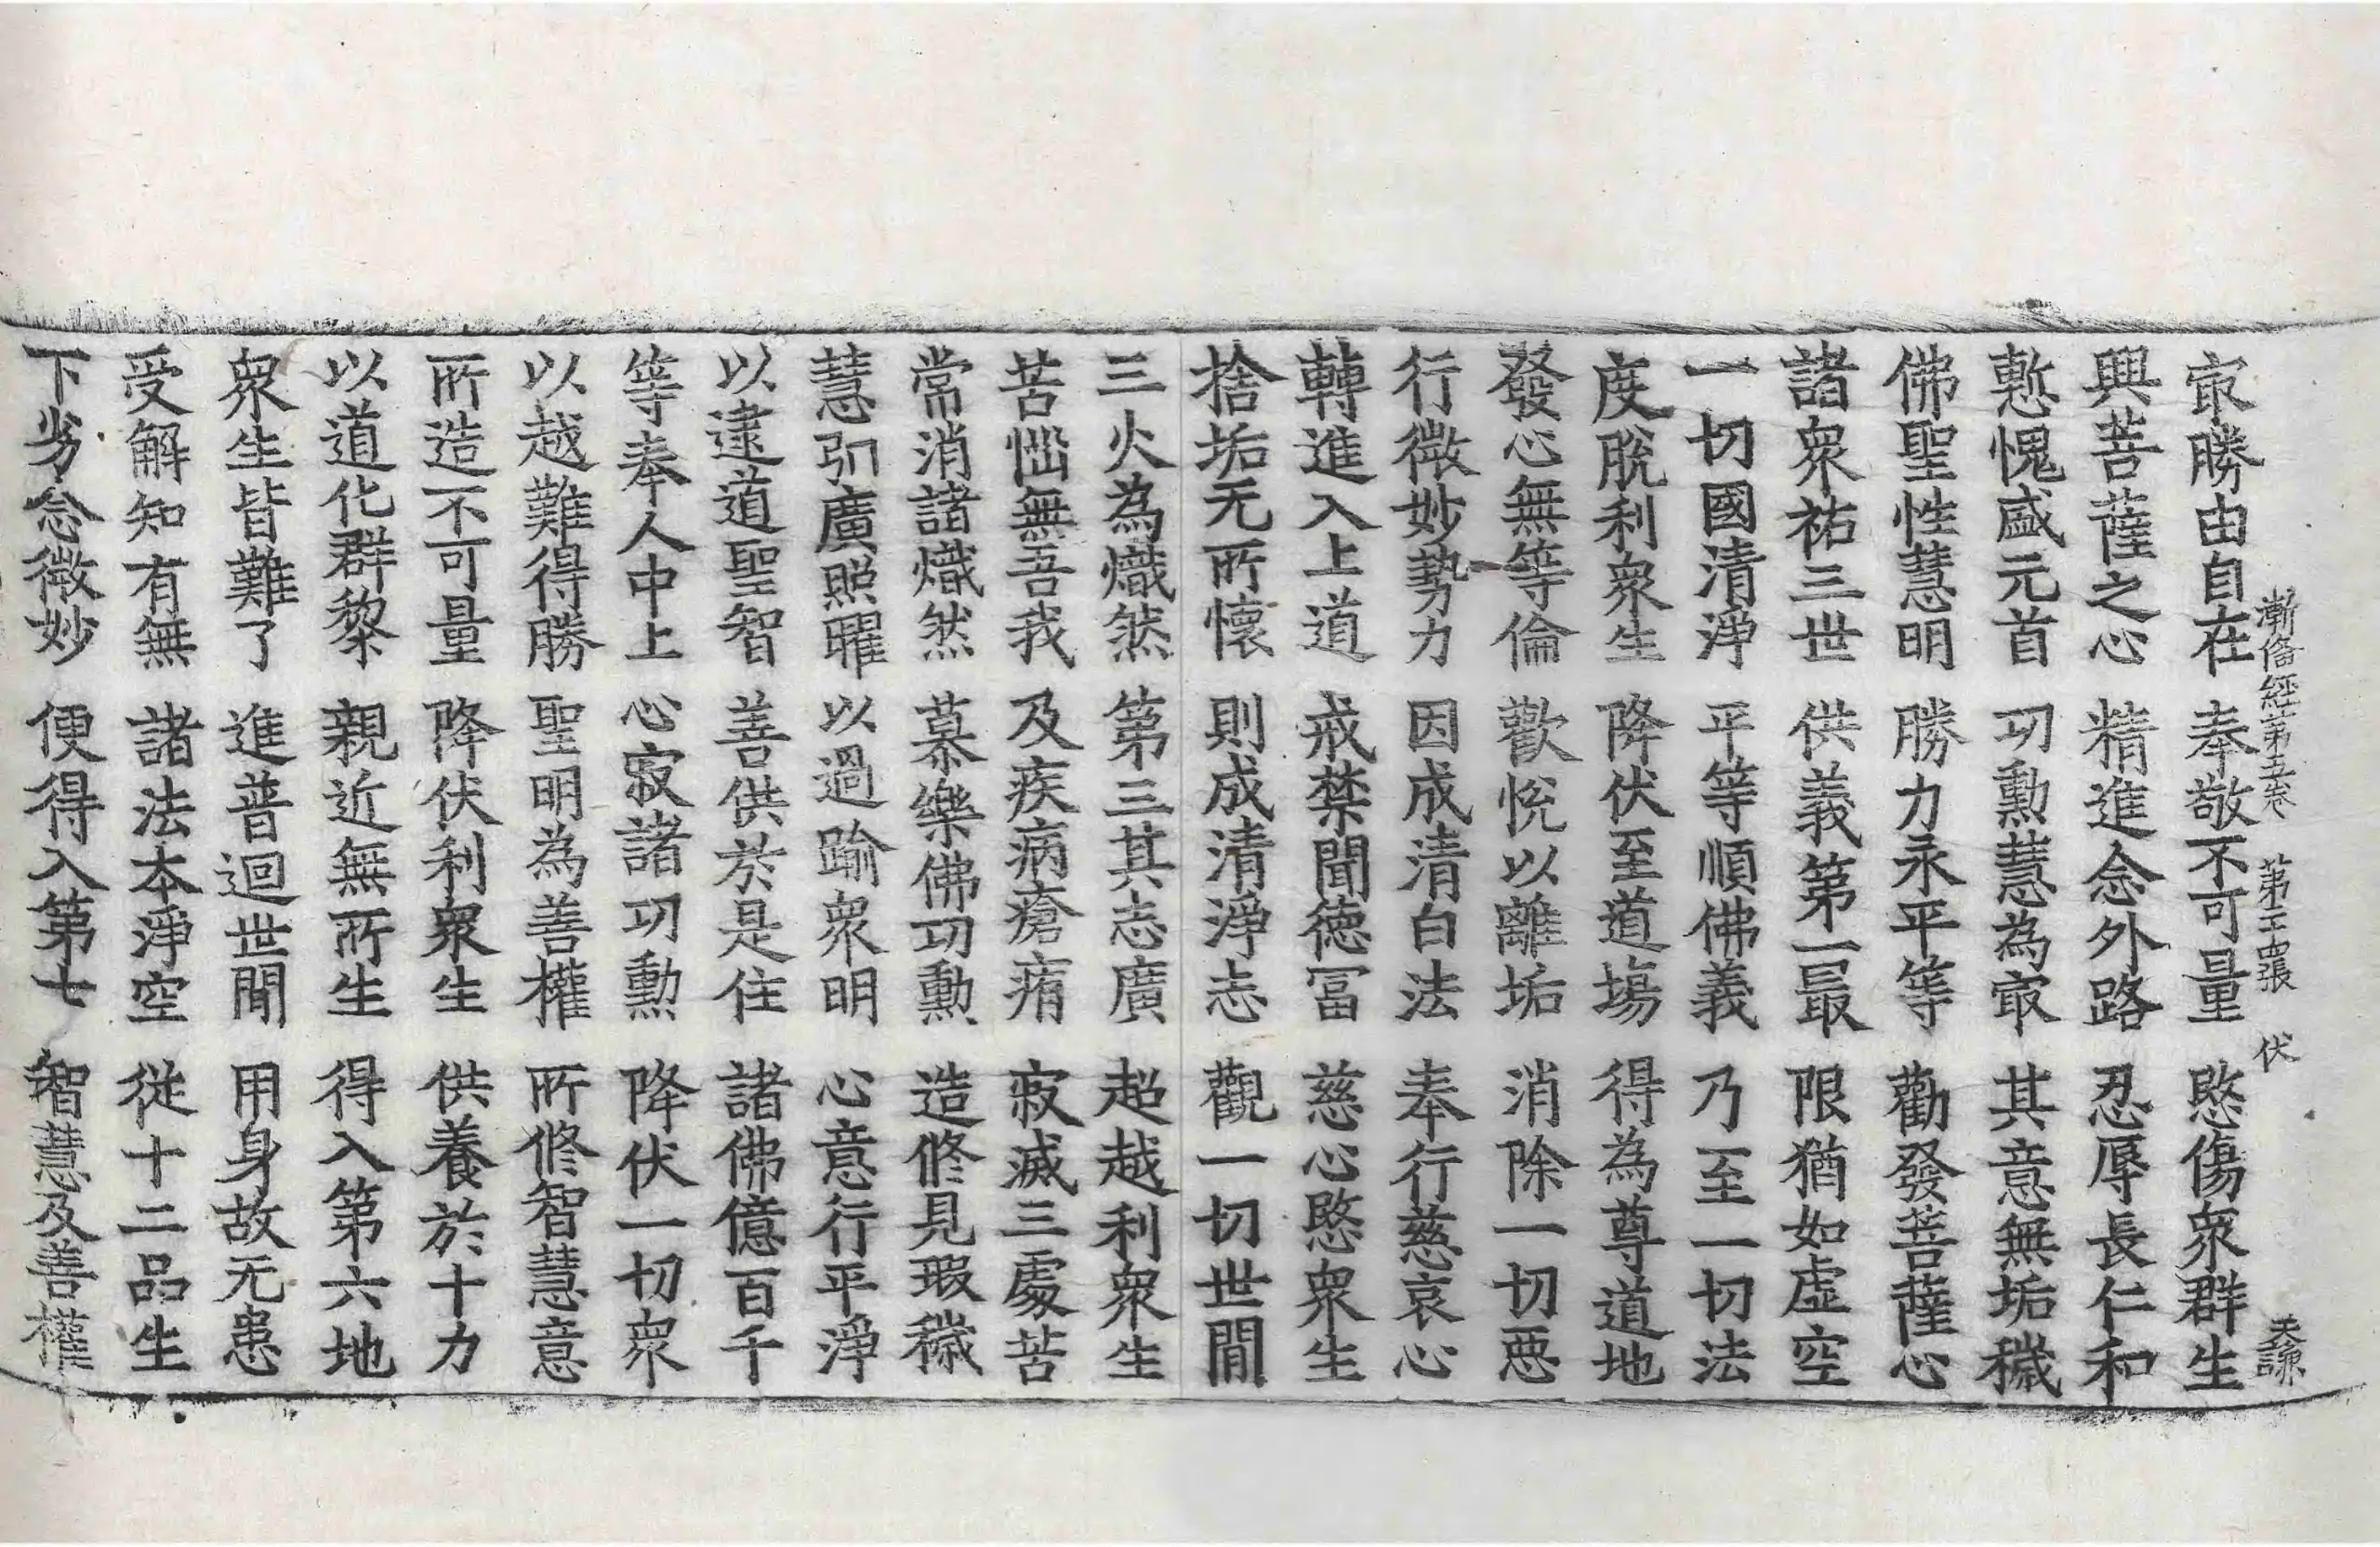 㝡勝由自在 奉敬不可量 愍傷衆群生
漸俻經第五卷 第五張 伏 天謙
興菩薩之心 精進念外路 忍辱長仁和
慙愧盛元首 功勳慧為㝡 其意無垢穢
佛聖性慧明 勝力永平等 勸發菩薩心
諸衆祐三世 供義第一最 限猶如虛空
一切國清淨 平等順佛義 乃至一切法
度脫利衆生 降伏至道場 得為尊道地
發心無等倫 歡悅以離垢 消除一切惡
行微妙勢力 因成清白法 奉行慈哀心
轉進入上道 戒禁聞德冨 慈心愍衆生
捨垢无所懷 則成清淨志 觀一切世間
三火為熾然 第三其志廣 超越利衆生
苦惱無吾我 及疾病瘡痏 寂滅三處苦
常消諸熾然 慕樂佛功勳 造修見瑕穢
慧引廣照曜 以過踰衆明 心意行平淨
以逮道聖智 善供於是住 諸佛億百千
等奉人中上 心寂諸功勳 降伏一切衆
以越難得勝 聖明為善權 所修智慧意
所造不可量 降伏利衆生 供養於十力
以道化群黎 親近無所生 得入第六地
衆生皆難了 進普迴世間 用身故无患
受解知有無 諸法本淨空 從十二品生
下劣念微妙 便得入第七 智慧及善權